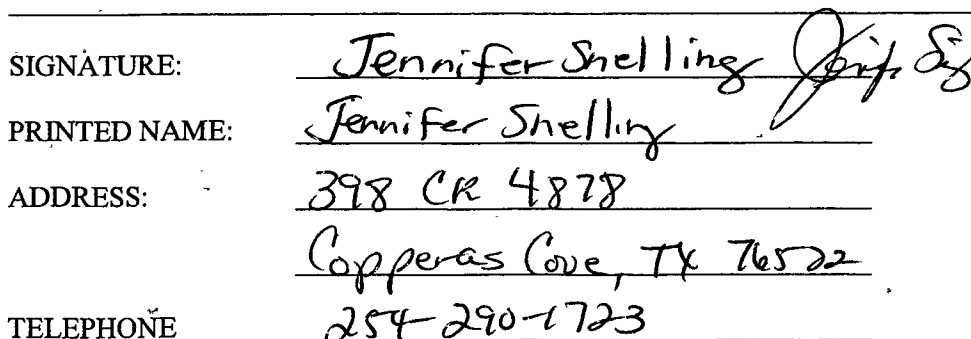 SIGNATURE: Jennifer Snelling
PRINTED NAME: Jennifer Snelling
ADDRESS: 398 CR 4878
Copperas Cove, TX 76522
TELEPHONE 254-290-1723